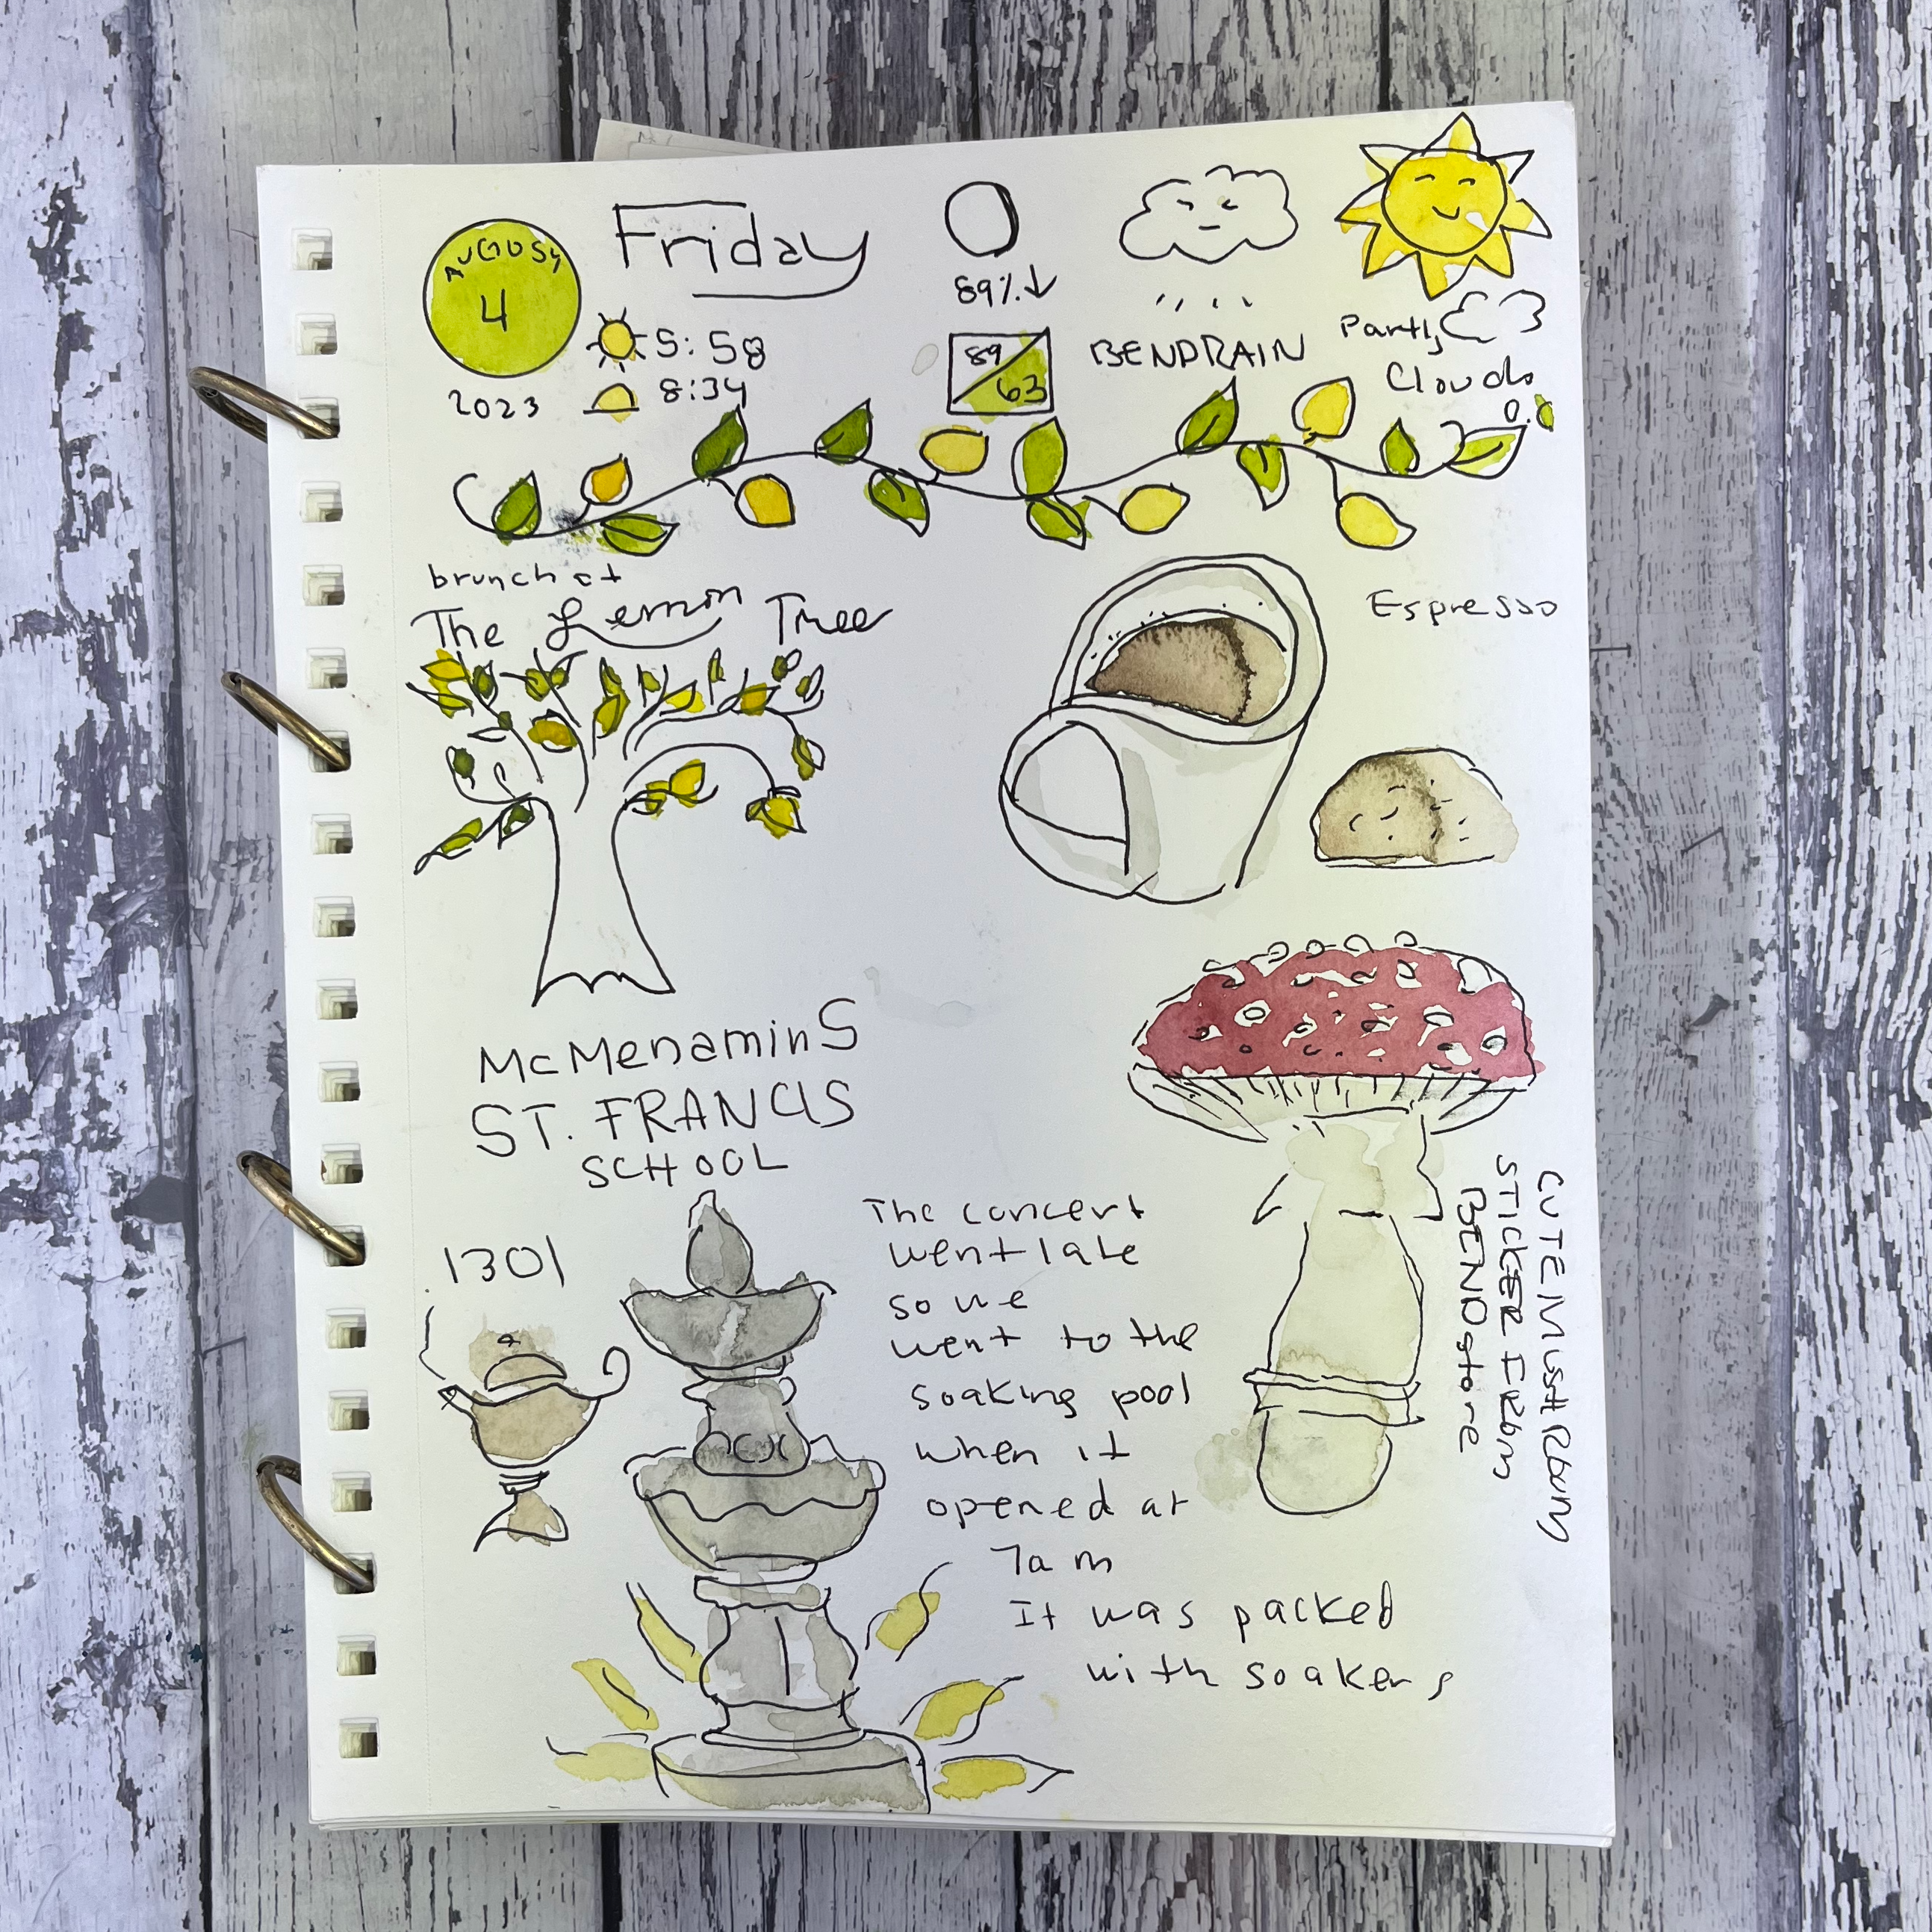 AUGUST
4
2023
Friday
5:58
8:34
89%↓
89/63
BENDRAIN
Partly
Clouds
brunch at
The Lemon Tree
Espresso
McMenaminS
ST. FRANCIS
SCHOOL
1301
The concert
went late
so we
went to the
soaking pool
when it
opened at
7am
It was packed
with soakers
CUTE MUSHRbum
STICKER FRbm
BEND store